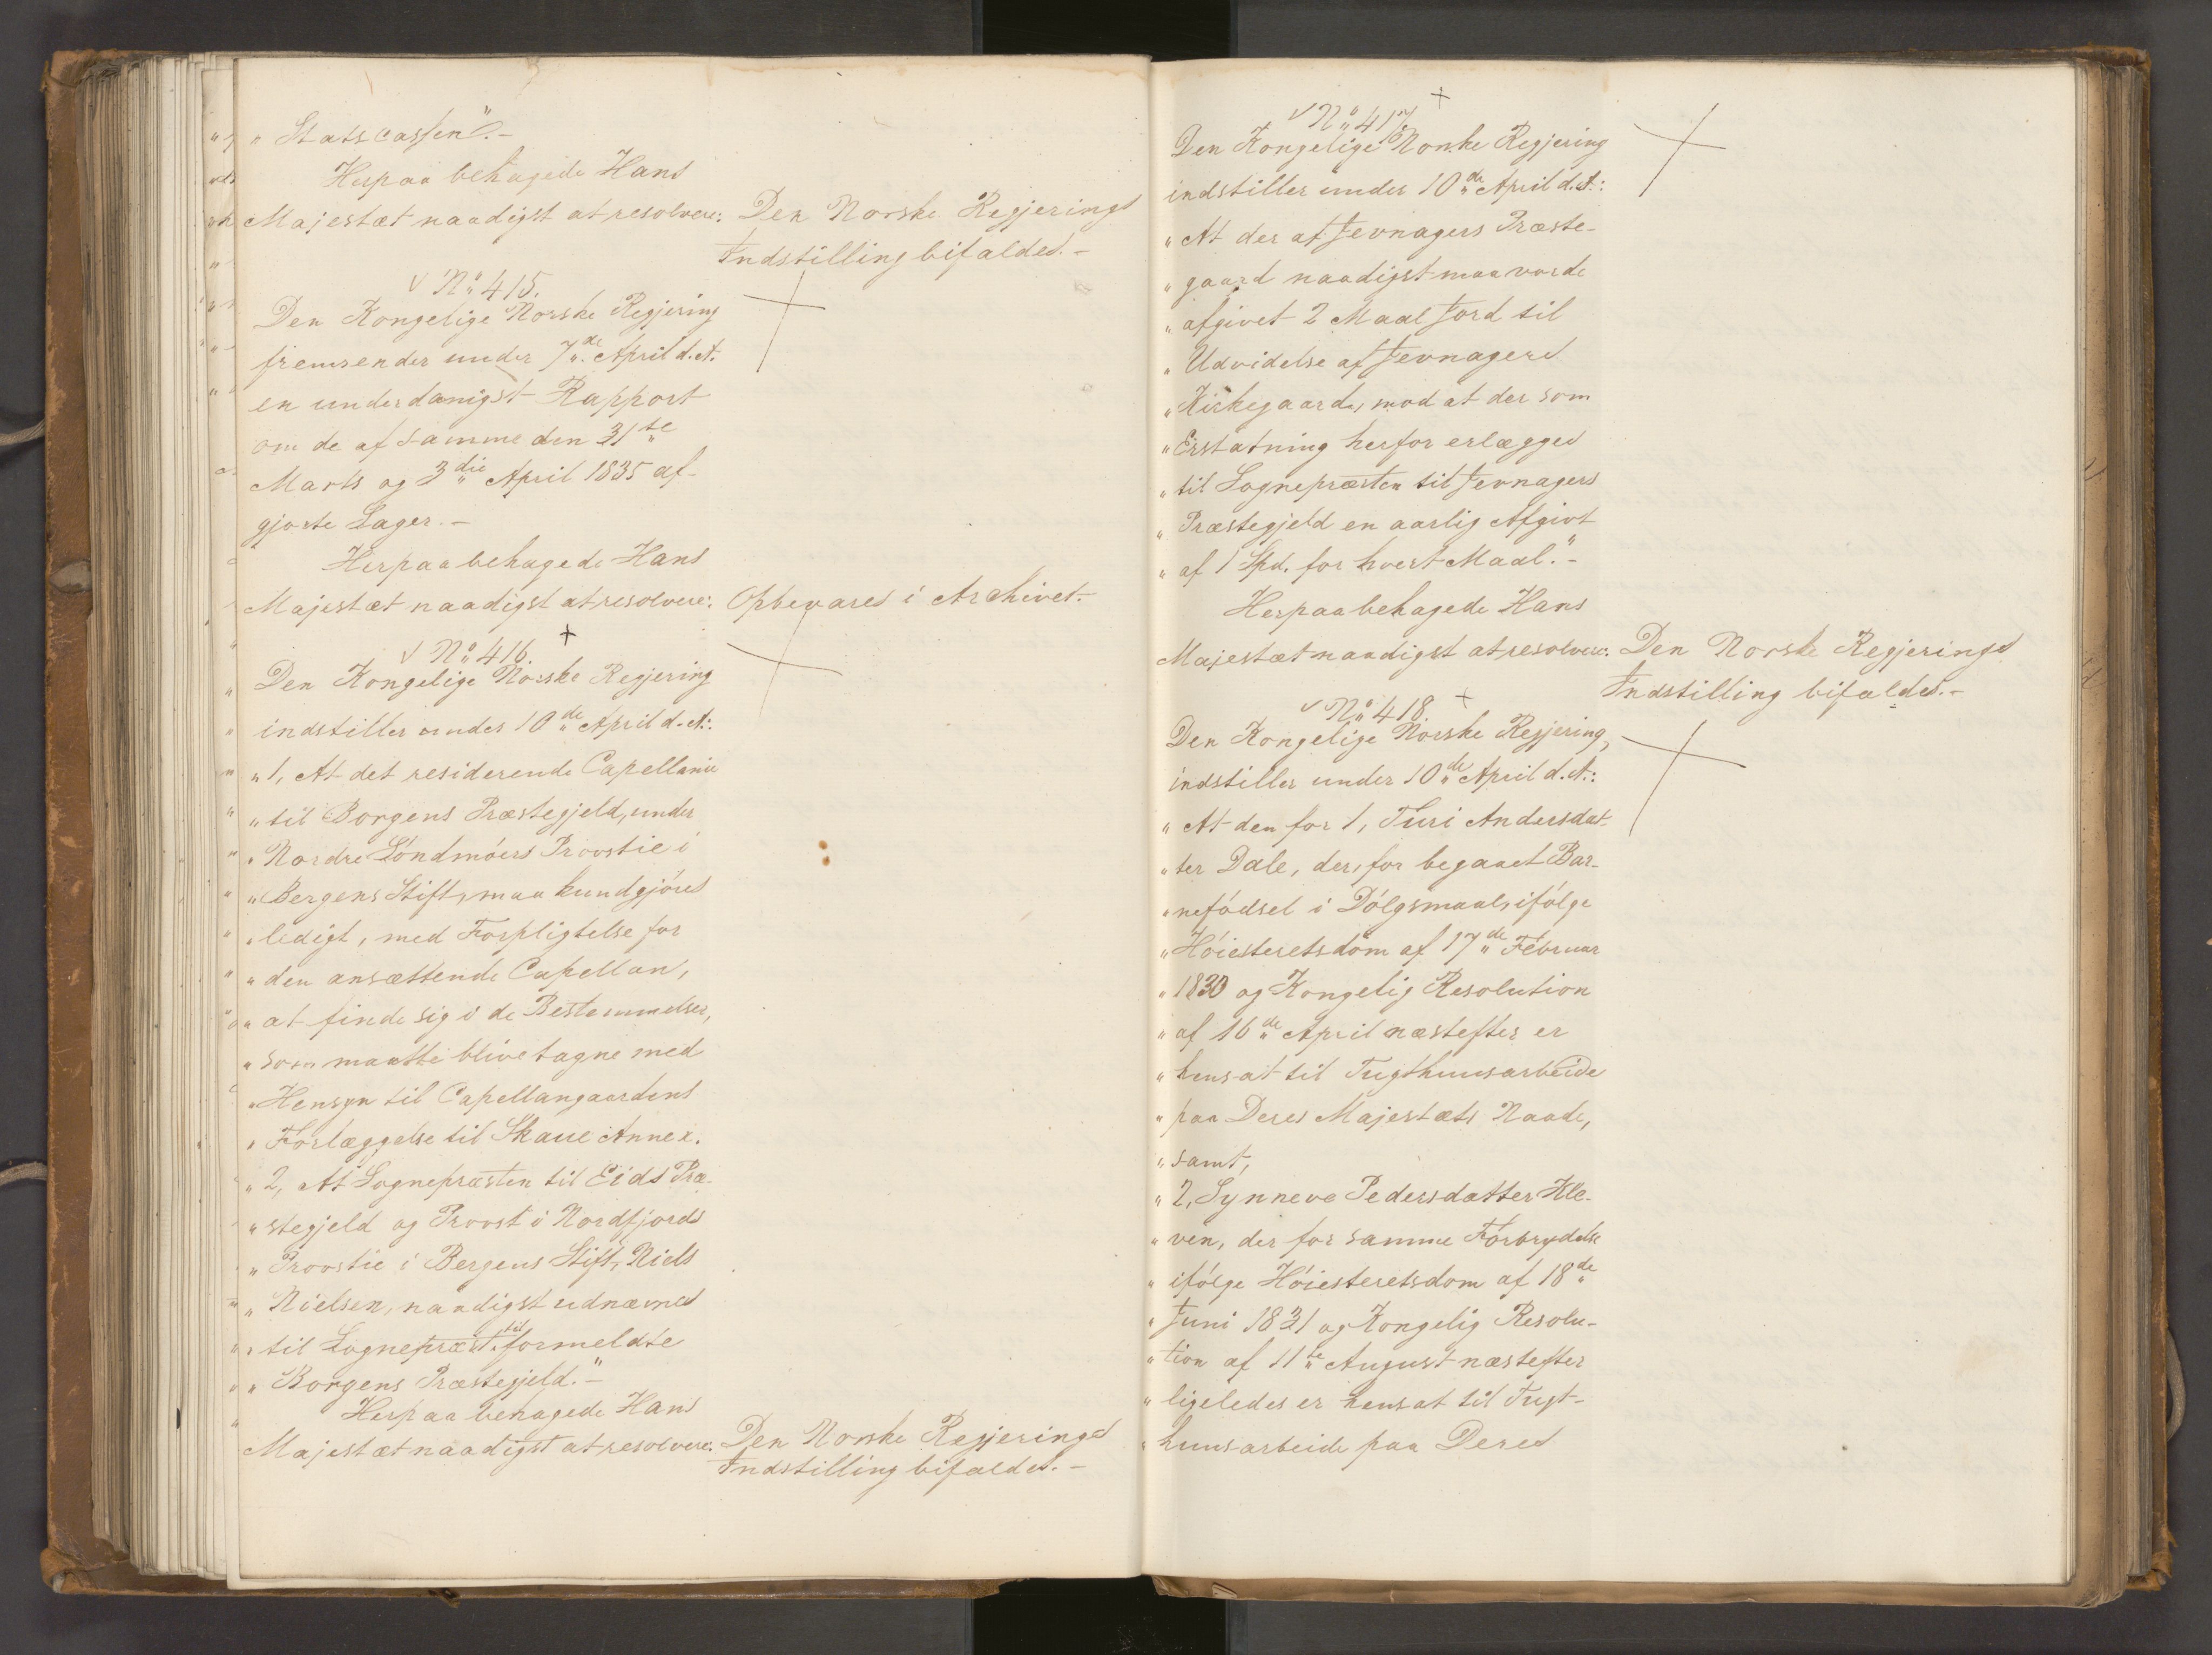 " Statscassen". -
Herpaa behagede Hans
Majestæt naadigst at resolvere: Den Norske Regjerings
Indstilling bifaldes. -
√ No 415.
Den Kongelige Norske Regjering
fremsender under 7de April d. A.
en underdanigst Rapport
om de af samme den 31te
Marts og 3die April 1835 af-
gjorte Sager. -
Herpaa behagede Hans
Majestæt naadigst at resolvere: Opbevares i Archivet. -
√ No 416 +
Den Kongelige Norske Regjering
indstiller under 10de April d. A.:
" 1, At det residerende Capellanie
" til Borgens Præstegjeld, under
" Nordre Söndmöers Provstie i
" Bergens Stift, maa kundgjöres
" ledigt, med Forpligtelse for
" den ansættende Capellan,
" at finde sig i de Bestemmelser,
" som maatte blive tagne med
" Hensyn til Capellangaardens
" Forlæggelse til Skaue Annex.
" 2, At Sognepræsten til Eids Præ-
" stegjeld og Provst i Nordfjords
" Provstie i Bergens Stift, Niels
" Nielsen, naadigst udnævnes
" til Sognepræst til formeldte
" Borgens Præstegjeld." -
Herpaa behagede Hans
Majestæt naadigst at resolvere: Den Norske Regjerings
Indstilling bifaldes. -
√ No 417. +
Den Kongelige Norske Regjering
indstiller under 10de April d. A.:
" At der af Jevnagers Præste-
" gaard naadigst maa vorde
" afgivet 2 Maal Jord til
" Udvidelse af Jevnagers
" Kirkegaard, mod at der som
" Erstatning herfor erlægges
" til Sognepræsten til Jevnagers
" Præstegjeld en aarlig Afgivt
" af 1 Spd. for hvert Maal." -
Herpaa behagede Hans
Majestæt naadigst at resolvere: Den Norske Regjerings
Indstilling bifaldes. -
√ No 418 +
Den Kongelige Norske Regjering,
indstiller under 10de April d. A.:
" At den for 1, Turi Andersdat-
" ter Dale, der, for begaaet Bar-
" nefödsel i Dölgsmaal, ifölge
" Höiesteretsdom af 17de Februar
" 1830 og Kongelig Resolution
" af 16de April næstefter er
" hensat til Tugthuusarbeide
" paa Deres Majestæts Naade,
" samt,
" 2, Synneva Pedersdatter Kle-
" ven, der for samme Forbrydelse
" ifölge Höiesteretsdom af 18de
" Juni 1831 og Kongelig Resolu-
" tion af 11te August næstefter
" ligeledes er hensat til Tugt-
" huusarbeide paa Deres